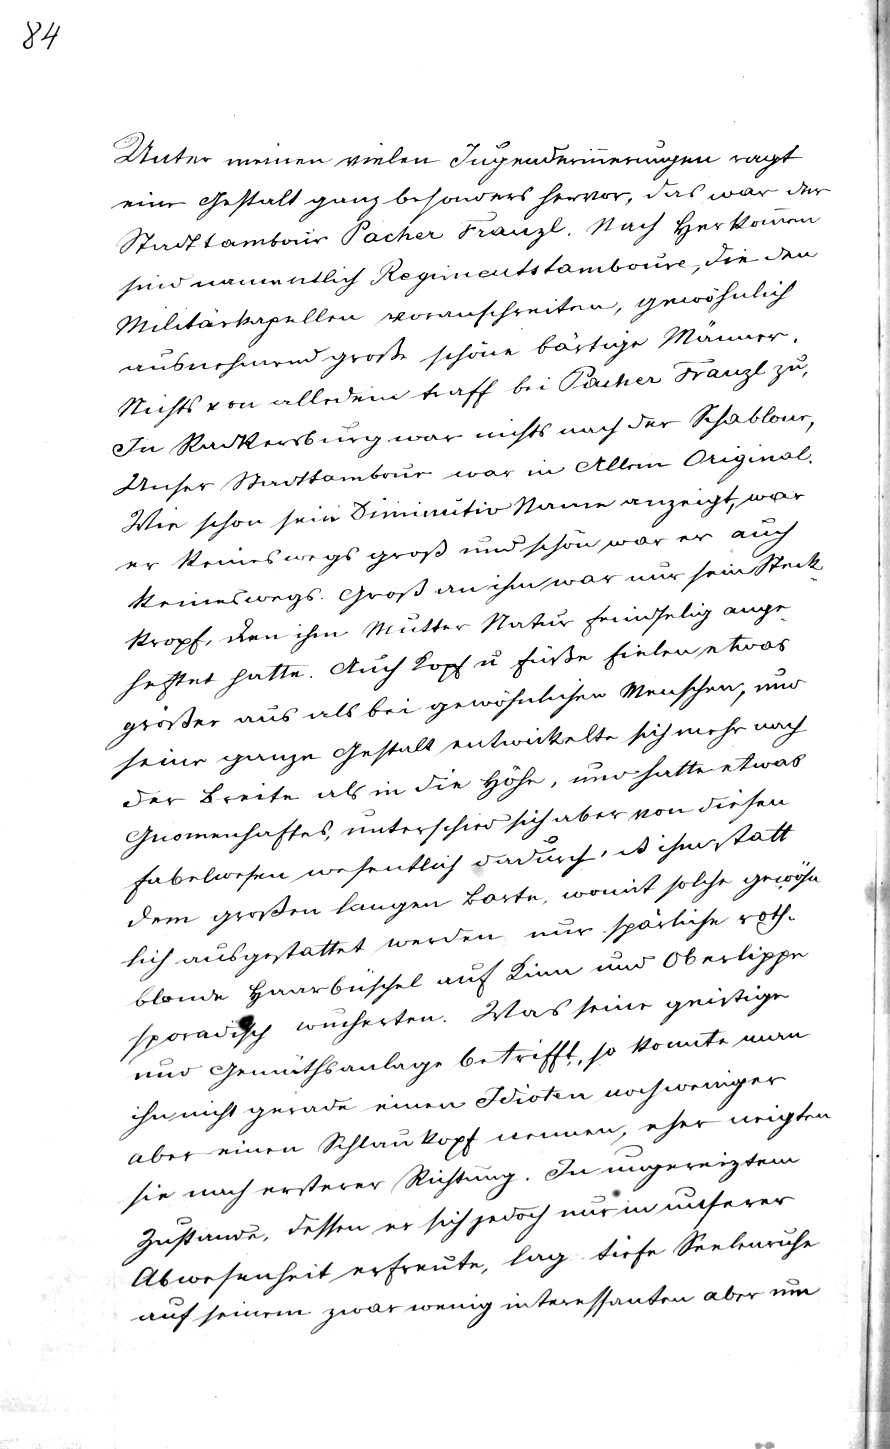 84
Unter meinen vielen Jugenderinnerungen ragt
eine Gestalt ganz besonders hervor, das war der
Stadttambour Pacher Franzl. Nach Herkommen
sind namentlich Regimentstamboure, die den
Militärkapellen voranschreiten, gewöhnlich
ausnehmend große schöne bärtige Männer.
Nichts von alledem traff bei Pacher Franzl zu,
In Radkersburg war nichts nach der Schablone,
Unser Stadttambour war in Allem Original.
Wie schon sein Diminutiv Name anzeigt, war
er keineswegs groß und schön war er auch
keineswegs. Groß an ihm war nur sein Steck
kropf, den ihm Mutter Natur feindselig ange-
heftet hatte. Auch Kopf u Füße fielen etwas
größer aus als bei gewöhnlichen Menschen, und
seine ganze Gestalt entwickelte sich mehr nach
der Breite als in die Höhe, und hatte etwas
Gnomenhaftes, unterschied sich aber von diesen
Fabelwesen wesentlich dadurch, ds ihm statt
dem großen langen Barte, womit solche gewöhn
lich ausgestattet werden nur spärliche roth-
blonde Haarbüschel auf Kinn und Oberlippe
sporadisch wucherten. Was seine geistige
und Gemüthsanlage betrifft, so konnte man
ihn nicht gerade einen Idioten noch weniger
aber einen Schlaukopf nennen, eher neigten
sie nach ersterer Richtung. In ungereiztem
Zustande, dessen er sich jedoch nur in unserer
Abwesenheit erfreute, lag tiefe Seelenruhe
auf seinem zwar wenig interessanten aber um